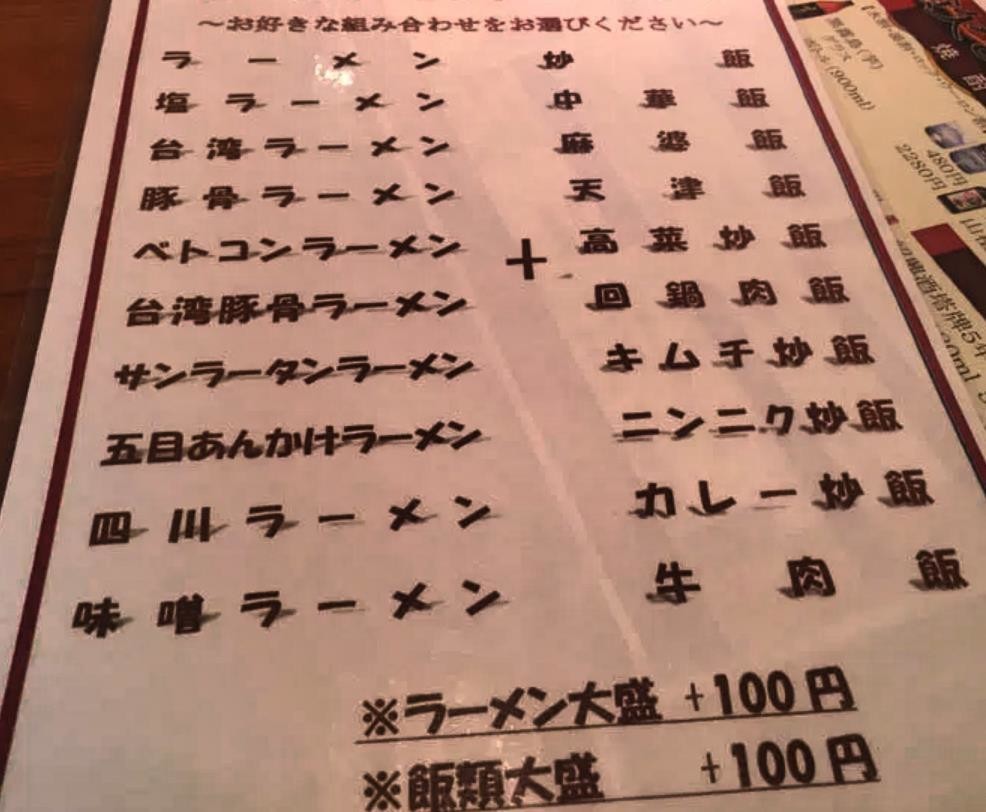 ～お好きな組み合わせをお選びください～
ラーメン 炒飯
塩ラーメン 中華飯
台湾ラーメン 麻婆飯
豚骨ラーメン 天津飯
ベトコンラーメン + 高菜炒飯
台湾豚骨ラーメン 回鍋肉飯
サンラータンラーメン キムチ炒飯
五目あんかけラーメン ニンニク炒飯
四川ラーメン カレー炒飯
味噌ラーメン 牛肉飯
※ラーメン大盛 +100円
※飯類大盛 +100円
焼酎
グラス
(900ml)
480円
2280円